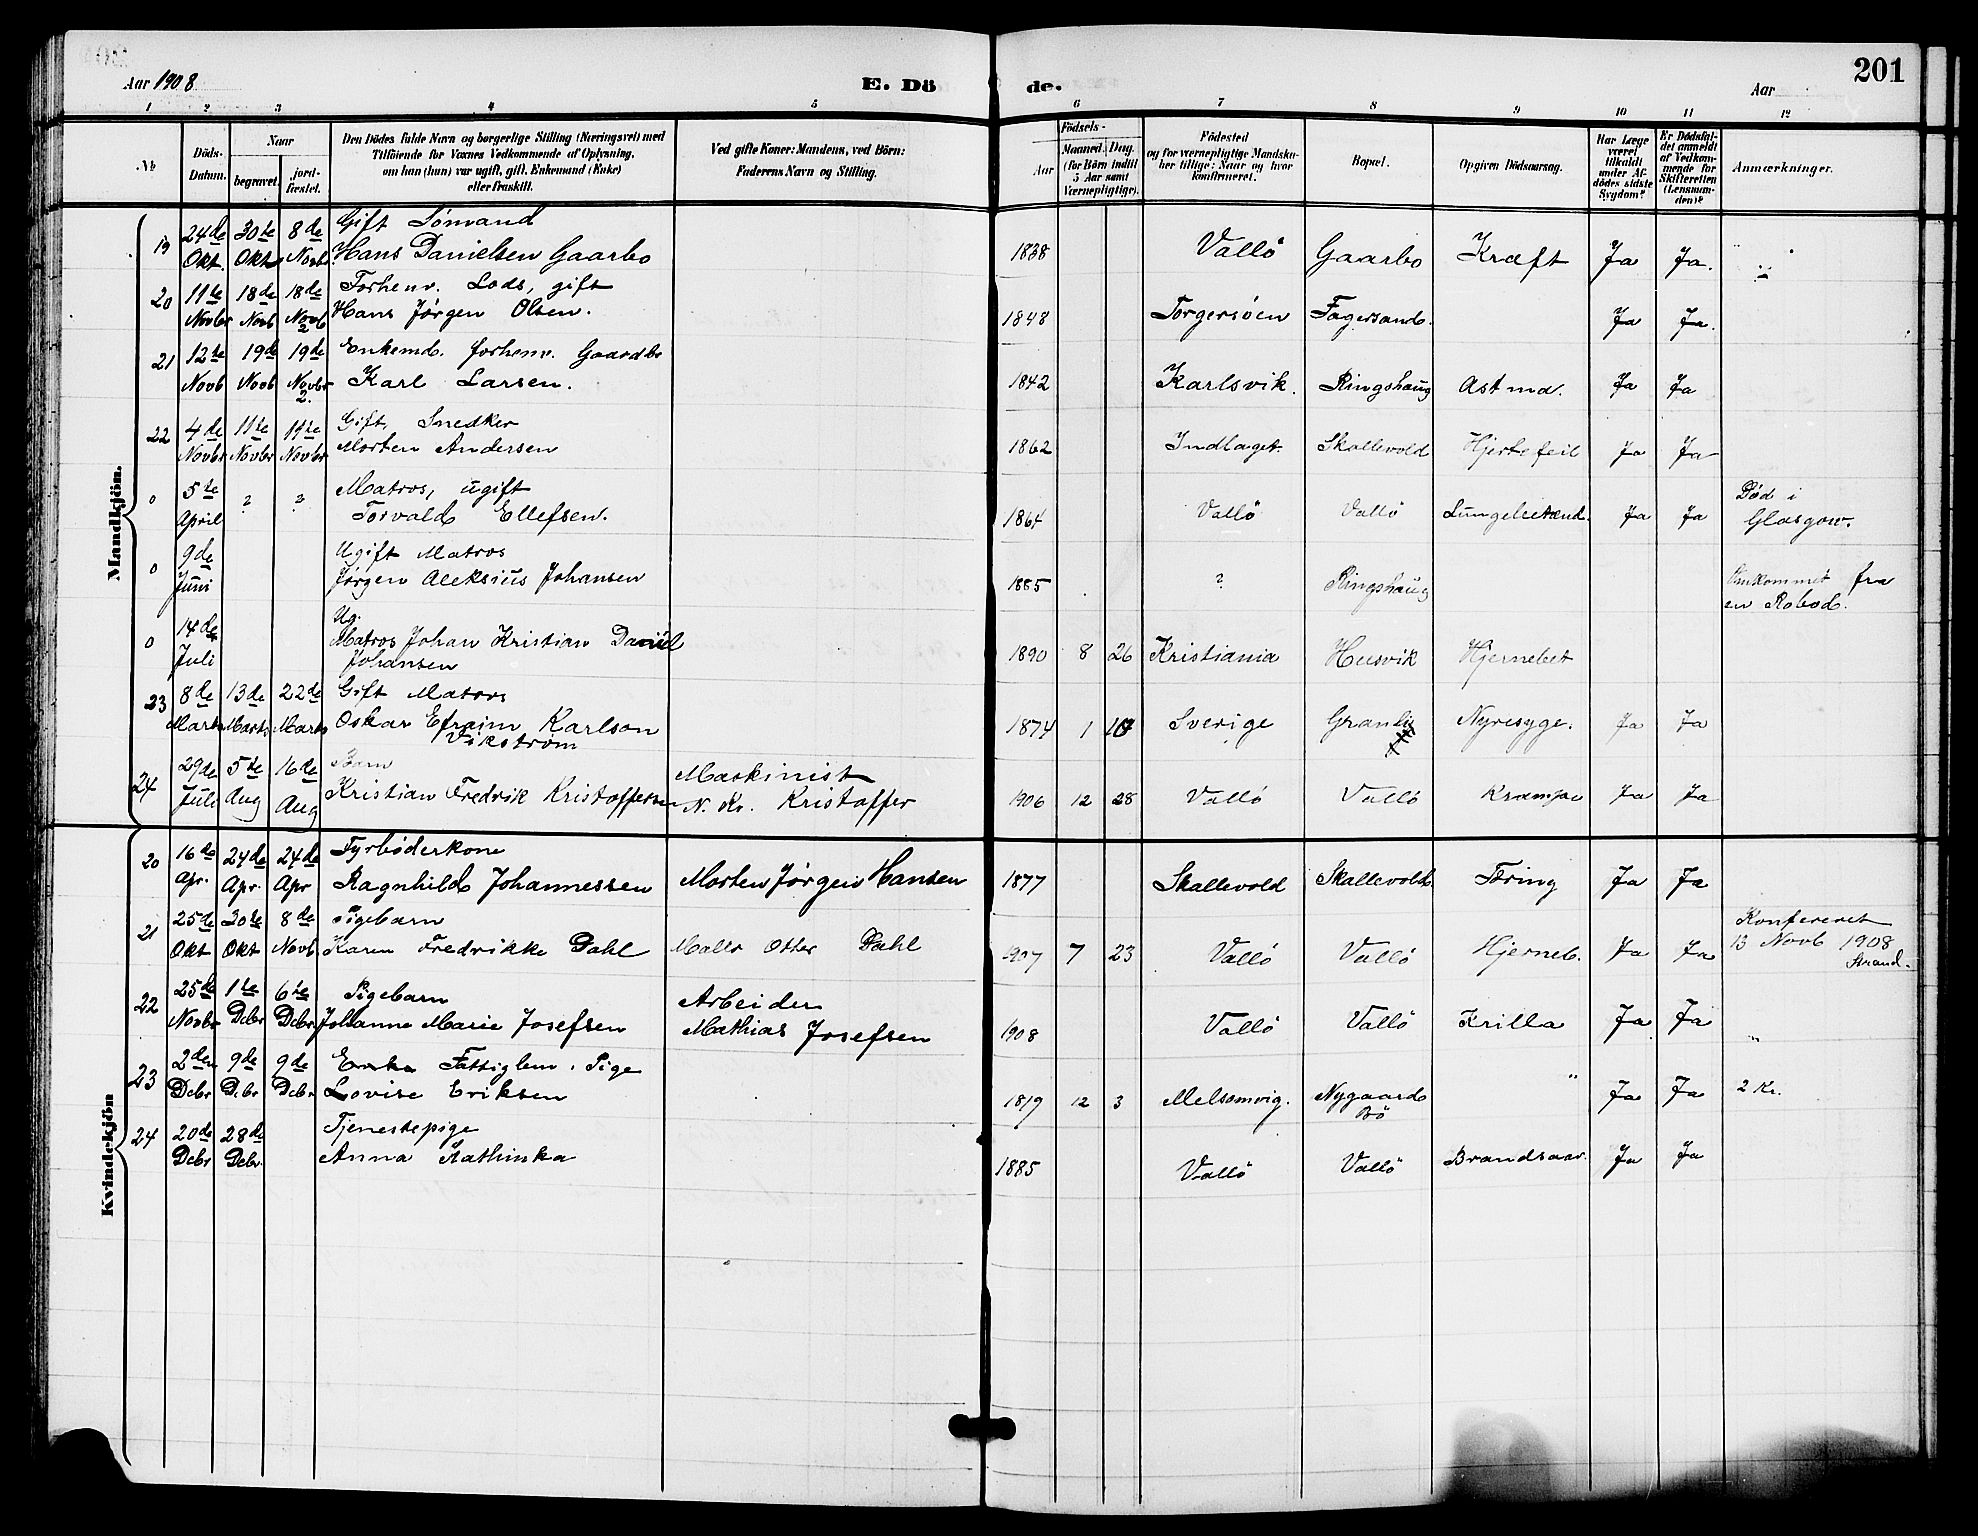 Aar 1908
E. Döde.
Aar
201
1 2 3 4 5 6 7 8 9 10 11 12
No
Döds-Datum.
Naar
begravet.
jordfæstet.
Den Dödes fulde Navn og borgerlige Stilling (Næringsvei) med
Tilföiende for Voxnes Vedkommende af Oplysning,
om han (hun) var ugift, gift, Enkemand (Enke)
eller fraskilt.
Ved gifte Koner: Mandens, ved Börn:
Faderens Navn og Stilling.
Födsels-
Aar
Maaned. Dag.
(for Börn indtil
5 Aar samt
Værnepligtige).
Födested
og for værnepligtige Mandskaber tillige: Naar og hvor
konfirmeret.
Bopæl.
Opgiven Dödsaarsag.
Har Læge
været
tilkaldt
under Afdödes sidste
Sygdom?
Er Dödsfaldet anmeldt
af Vedkommende for
Skifteretten
(Lensmanden)?
Anmærkninger.
Mandkjön.
Gift Sömand
19 24de Okt. 30te Okt 8de Novb Hans Danielsen Gaarbo 1838 Vallö Gaarbo Kræft Ja Ja.
Forhenv. Lods, gift
20 11te Novbr 18de Novb 18de Novb 2 Hans Jörgen Olsen. 1848 Torgersöen Fagersand. Ja Ja.
Enkemd. forhenv. Gaardbr
21 12te Novb 19de Novb 19de Novbr 2. Karl Larsen. 1842 Karlsvik. Ringshaug Astma. Ja Ja
Gift, Snedker
22 4de Novbr 11te Novbr 11te Novbr Morten Andersen 1862 Indlaget. Skallevold Hjertefeil Ja Ja
Matros, ugift
0 5te April ? ? Torvald Ellefsen. 1864 Vallö Vallö Lungebetænd. Ja Ja Död i
Glasgow.
Ugift Matros
0 9de Juni Jörgen Aleksius Johansen 1885 ? Ringshaug Omkommet fra
en Robaad.
Ug.
0 14de Juli Matros Johan Kristian Daniel
Johansen 1890 8 26 Kristiania Husvik Hjernebet
Gift Matros
23 8de Marts 13de Marts 22de Marts Oskar Efraim Karlson
Vikström 1874 1 10 Sverige Granli Nyresyge. Ja Ja
Barn
24 29de Juli 5te Aug 16de Aug Kristian Fredrik Kristoffersen Maskinist
N. Kr. Kristoffer 1906 12 28 Vallö Vallö Krampe Ja Ja
Kvindekjön
Fyrböderkone
20 16de Apr. 24de Apr. 24de Apr Ragnhild Johannessen Morten Jörgen Hansen 1877 Skallevold Skallevold Tæring Ja Ja
Pigebarn
21 25de Okt 30te Okt 8de Novb. Karen Fredrikke Dahl Otter Dahl 1907 7 23 Vallö Vallö Hjerneb. Ja Ja Konfereret
13 Novb 1908
Strand.
Pigebarn
22 25de Novbr 1te Debr 6te Debr Johanne Marie Josefsen Arbeider
Mathias Josefsen 1908 Vallö Vallö Krilla Ja Ja "
Fattiglem. Pige
23 2den Debr 9de Debr 9de Debr Lovise Eriksen 1819 12 3 Melsomvig. Nygaard
Bö " Ja Ja 2 Kr.
Tjenestepige
24 20de Debr 28de Debr. Anna Kathinka 1885 Vallö Vallö Brandsaar. Ja Ja